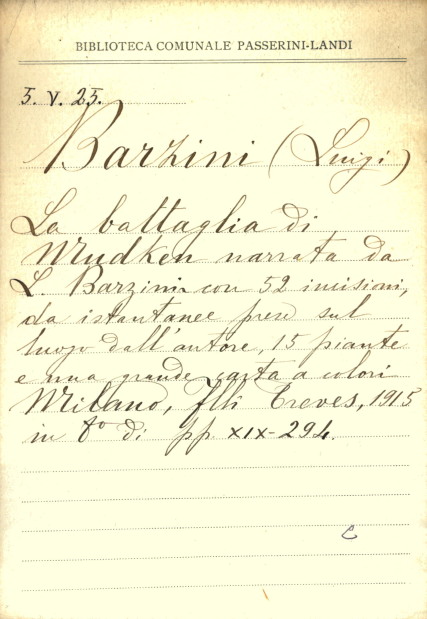 BIBLIOTECA COMUNALE PASSERINI-LANDI
5. V. 25.
Barzini (Luigi)
La battaglia di
Mudken narrata da
L. Barzini con 52 incisioni,
da istantanee prese sul
luogo dall'autore, 15 piante
e una grande carta a colori
Milano, Flli Treves, 1915
in 8° di pp. XIX-294.
C